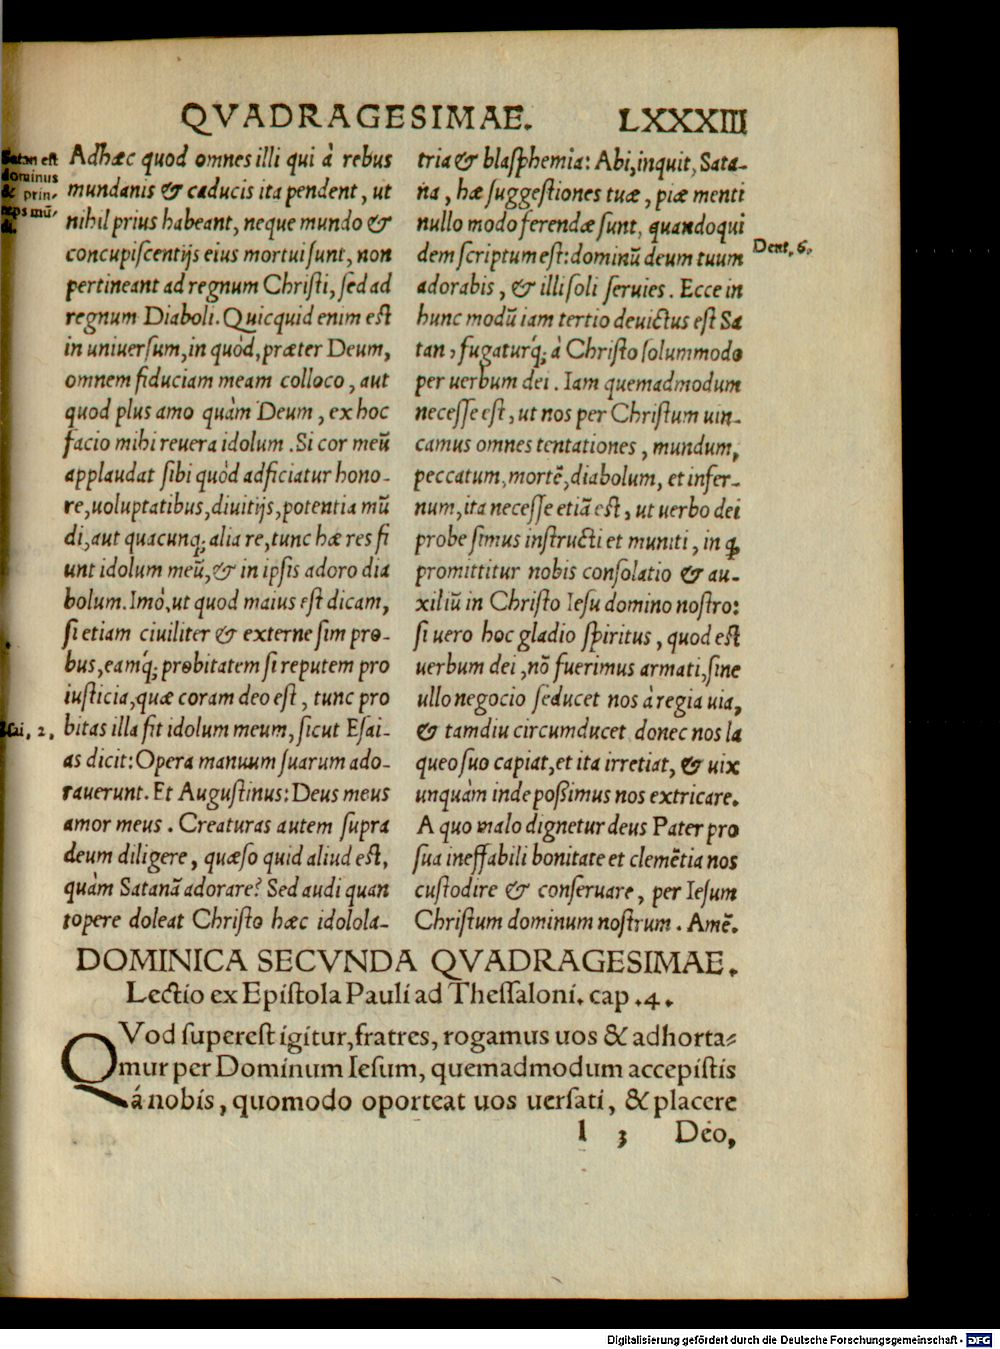 QVADRAGESIMAE. LXXXIII
Satan est
dominus
& prin-
ceps mū-
di.
Adhæc quod omnes illi qui à rebus
mundanis & caducis ita pendent, ut
nihil prius habeant, neque mundo &
concupiscentijs eius mortui sunt, non
pertineant ad regnum Christi, sed ad
regnum Diaboli. Quicquid enim est
in uniuersum, in quòd, præter Deum,
omnem fiduciam meam colloco, aut
quod plus amo quàm Deum, ex hoc
facio mihi reuera idolum. Si cor meū
applaudat sibi quòd adficiatur hono-
re, uoluptatibus, diuitijs, potentia mū
di, aut quacunq; alia re, tunc hæ res fi
unt idolum meū, & in ipsis adoro dia
bolum. Imò, ut quod maius est dicam,
si etiam ciuiliter & externe sim pro-
bus, eamq́; probitatem si reputem pro
iusticia, quæ coram deo est, tunc pro
Isai. 2.
bitas illa fit idolum meum, sicut Esai-
as dicit: Opera manuum suarum ado-
rauerunt. Et Augustinus: Deus meus
amor meus. Creaturas autem supra
deum diligere, quæso quid aliud est,
quàm Satanā adorare? Sed audi quan
topere doleat Christo hæc idolola-
tria & blasphemia: Abi, inquit, Sata-
na, hæ suggestiones tuæ, piæ menti
nullo modo ferendæ sunt, quandoqui
Deut. 6.
dem scriptum est: dominū deum tuum
adorabis, & illi soli seruies. Ecce in
hunc modū iam tertio deuictus est Sa
tan, fugaturq́; à Christo solummodo
per uerbum dei. Iam quemadmodum
necesse est, ut nos per Christum uin-
camus omnes tentationes, mundum,
peccatum, mortē, diabolum, et infer-
num, ita necesse etiā est, ut uerbo dei
probe simus instructi et muniti, in ꝗ
promittitur nobis consolatio & au-
xiliū in Christo Iesu domino nostro:
si uero hoc gladio spiritus, quod est
uerbum dei, nō fuerimus armati, sine
ullo negocio seducet nos à regia uia,
& tamdiu circumducet donec nos la
queo suo capiat, et ita irretiat, & uix
unquàm inde poßimus nos extricare.
A quo malo dignetur deus Pater pro
sua ineffabili bonitate et clemētia nos
custodire & conseruare, per Iesum
Christum dominum nostrum. Amē.
DOMINICA SECVNDA QVADRAGESIMAE.
Lectio ex Epistola Pauli ad Thessaloni. cap .4.
QVod superest igitur, fratres, rogamus uos & adhorta-
mur per Dominum Iesum, quemadmodum accepistis
á nobis, quomodo oporteat uos uersati, & placere
l 3 Deo,
Digitalisierung gefördert durch die Deutsche Forschungsgemeinschaft - DFG